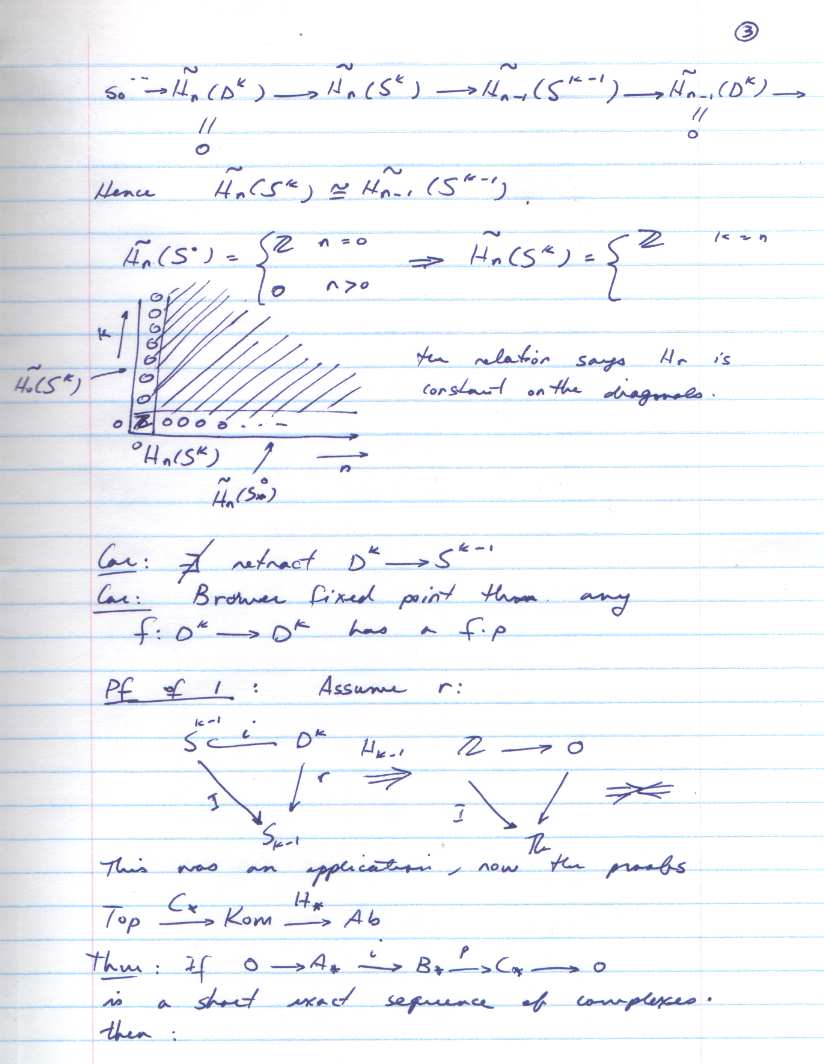 ③
So ⋯ → H̃ₙ(Dᵏ) ⟶ H̃ₙ(Sᵏ) ⟶ H̃ₙ₋₁(Sᵏ⁻¹) ⟶ H̃ₙ₋₁(Dᵏ) ⟶
|| ||
0 0
Hence H̃ₙ(Sᵏ) ≅ H̃ₙ₋₁(Sᵏ⁻¹).
H̃ₙ(S⁰) = { ℤ n = 0 ⟹ H̃ₙ(Sᵏ) = { ℤ k = n
0 n > 0
0
0
0
0
0
0
0
k
H̃₀(Sᵏ)
the relation says Hₙ is
constant on the diagonals.
0 ℤ 0 0 0 0 . . . -
0 Hₙ(Sᵏ) n
H̃ₙ(S⁰)
Cor: ∄ retract Dᵏ ⟶ Sᵏ⁻¹
Cor: Brower fixed point thm. any
f: Dᵏ ⟶ Dᵏ has a f.p
Pf of 1 : Assume r:
Sᵏ⁻¹ i Dᵏ Hₖ₋₁ ⟹ ℤ ⟶ 0
I r I
Sₖ₋₁ ℤ
This was an application, now the proofs
Top C⁎⟶ Kom H⁎⟶ Ab
Thm: If 0 ⟶ A⁎ i⟶ B⁎ p⟶ C⁎ ⟶ 0
is a short exact sequence of complexes.
then :